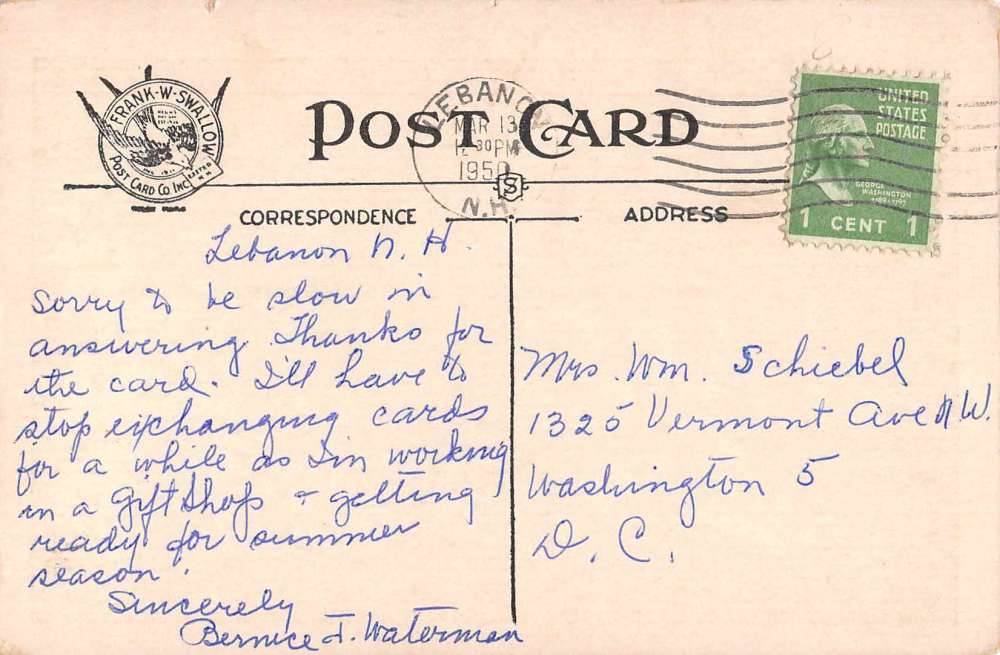 FRANK-W-SWALLOW
POST CARD CO INC.
POST CARD
LEBANON
MAR 13
12 30 PM
1950
N.H.
UNITED
STATES
POSTAGE
GEORGE
WASHINGTON
1 CENT 1
S
CORRESPONDENCE
ADDRESS
Lebanon N. H.
Sorry to be slow in
answering. Thanks for
the card. I'll have to
stop exchanging cards
for a while as I'm working
in a Gift Shop & getting
ready for summer
season.
Sincerely
Bernice J. Waterman
Mrs. Wm. Schiebel
1325 Vermont Ave N.W.
Washington 5
D. C.